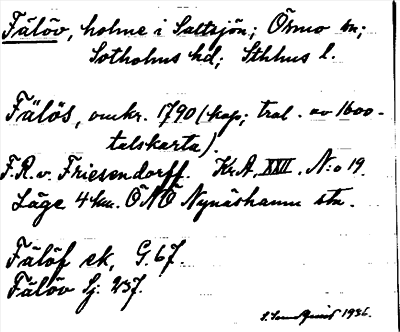 Fälöv, holme i Saltsjön; Ösmo sn;
Sotholms hd; Sthlms l.
Fälös, omkr. 1790 (kop; trol. av 1600-
talskarta).
F.R. v. Friesendorff. Kr.A. XXII. N:o 19.
Läge 4 km. ÖNÖ Nynäshamn stn.
Fälöf ek, G. 67.
Fälöv Sj: 237.
1936.